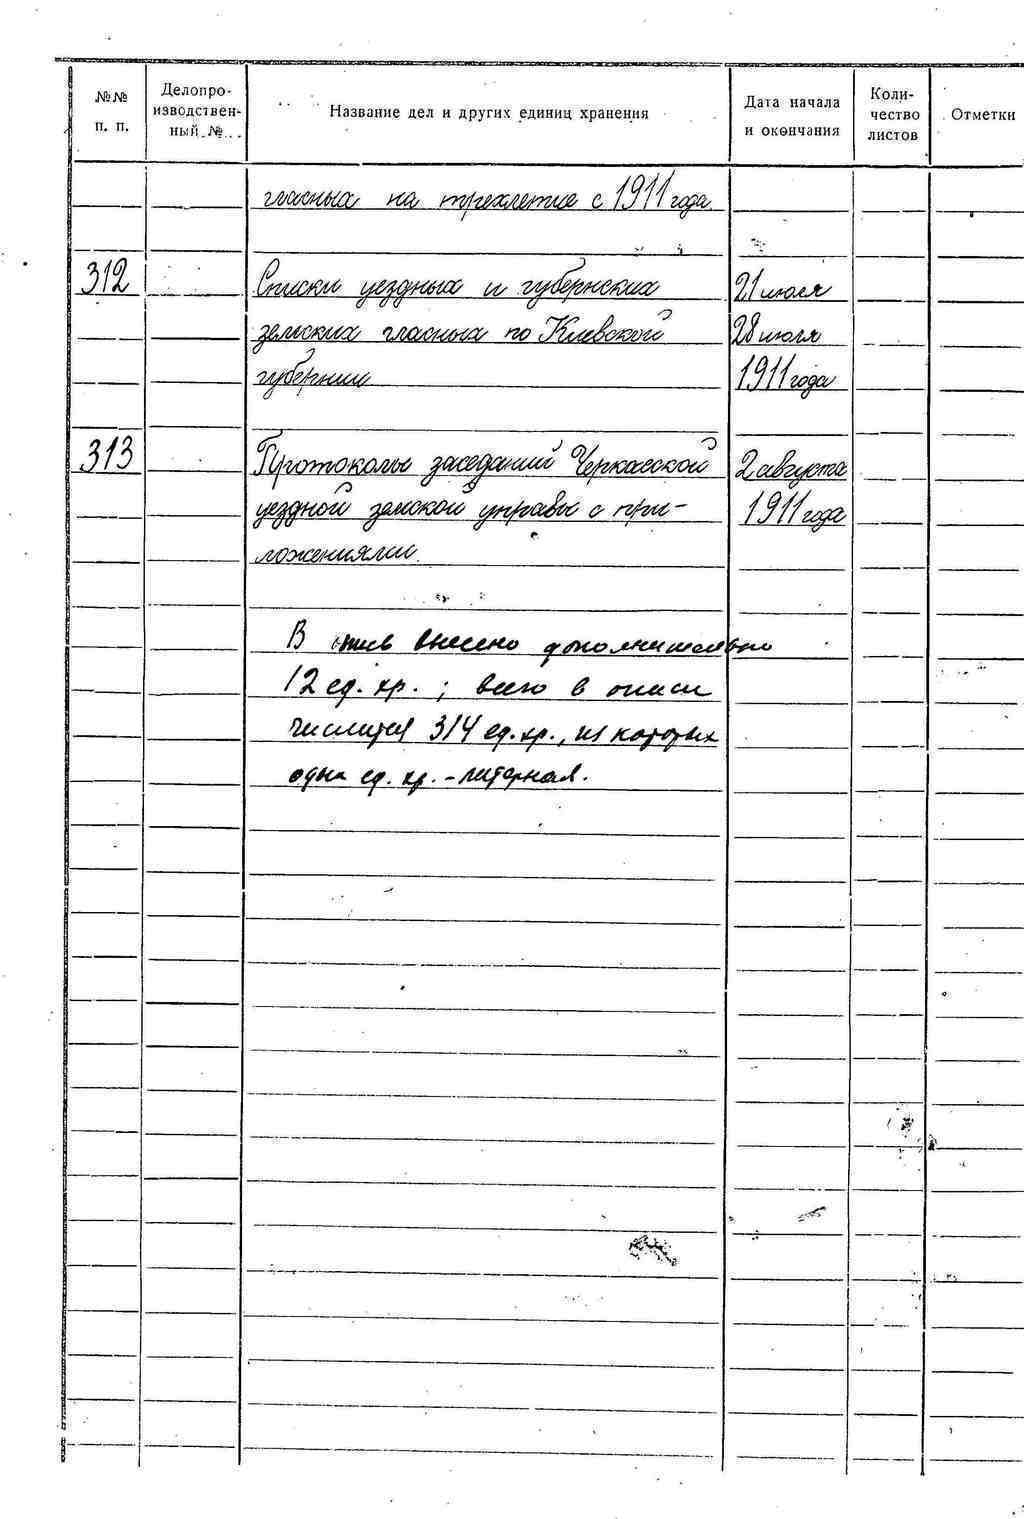 №№
п. п.
Делопро-
изводствен-
ный №...
Название дел и других единиц хранения
Дата начала
и окончания
Коли-
чество
листов
Отметки
гласных на трехлетие с 1911 года.
312 Списки уездных и губернских 21 июля
земских гласных по Киевской 28 июля
губернии 1911 года
313 Протоколы заседаний Черкасской 2 августа
уездной земской управы с при- 1911 года
ложениями.
В опись внесено дополнительно
12 ед. хр.; всего в описи
числится 314 ед. хр., из которых
одна ед. хр. - литерная.